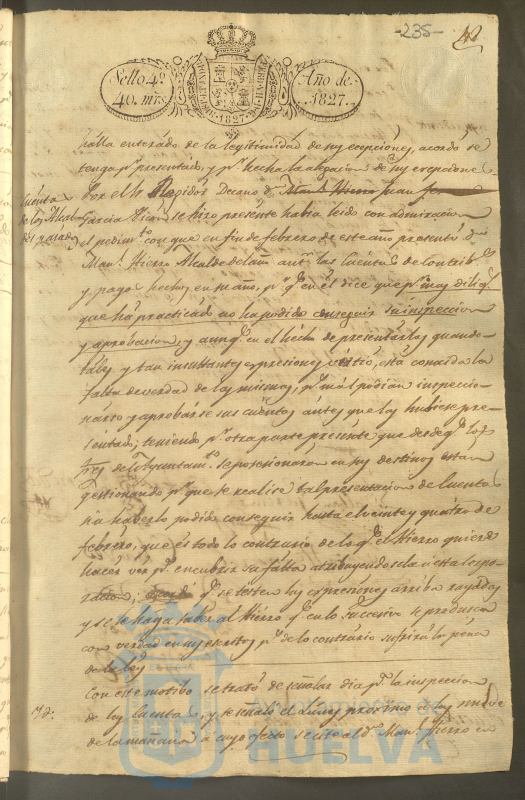 -235-
42
Sello 4º
40. mrs.
Año de
1827.
halla enterado de la legitimidad de sus ecepciones, acordó se
tenga pr. presentado, y pr. hecha la alegacion de sus ecepciones.
Cuenta
de los Alcal
des pasados
Por el Sor. Regidor Decano Dn. Juan
Garcia se hizo presente habia leido con admiracion
el pedimto. con que en fin de febrero de este año presentó Dn.
Manl. Hierro Alcalde del año antr. las cuentas de contribs.
y pagos hechos en su año, pr. qe. en el dice que pr. mas diligs.
que ha practicado no ha podido conseguir su inspeccion
y aprobacion, y aunqe. en el hecho de presentarlas quando
tales y tan insultantes expresiones vertió, está conocida la
falta de verdad de las mismas, pr. mal podian inspeccio-
narse y aprobarse sus cuentas antes que las hubiese pre-
sentado; teniendo pr. otra parte presente que desde qe. los
Sres. de este Ayuntamto. se posesionaron en sus destinos estan
gestionando pr. que se realice tal presentacion de cuentas
no haberlo podido conseguir hasta el veinte y quatro de
febrero, que es todo lo contrario de lo qe. el Hierro quiere
hacer ver pr. encubrir su falta atribuyendosela a esta corpo-
racion; qe. se testen las expresiones arriba rayadas
y se le haga saber al Hierro qe. en lo succesivo se produzca
con verdad en sus escritos, pr. de lo contrario sufrirá la pena
de la ley
Con este motibo se trató de señalar dia pa. la inspeccion
de las cuentas, y se señaló el Lunes proximo a las nuebe
de la mañana a cuyo efecto se cite al Dn. Manl. Hierro en
HUELVA